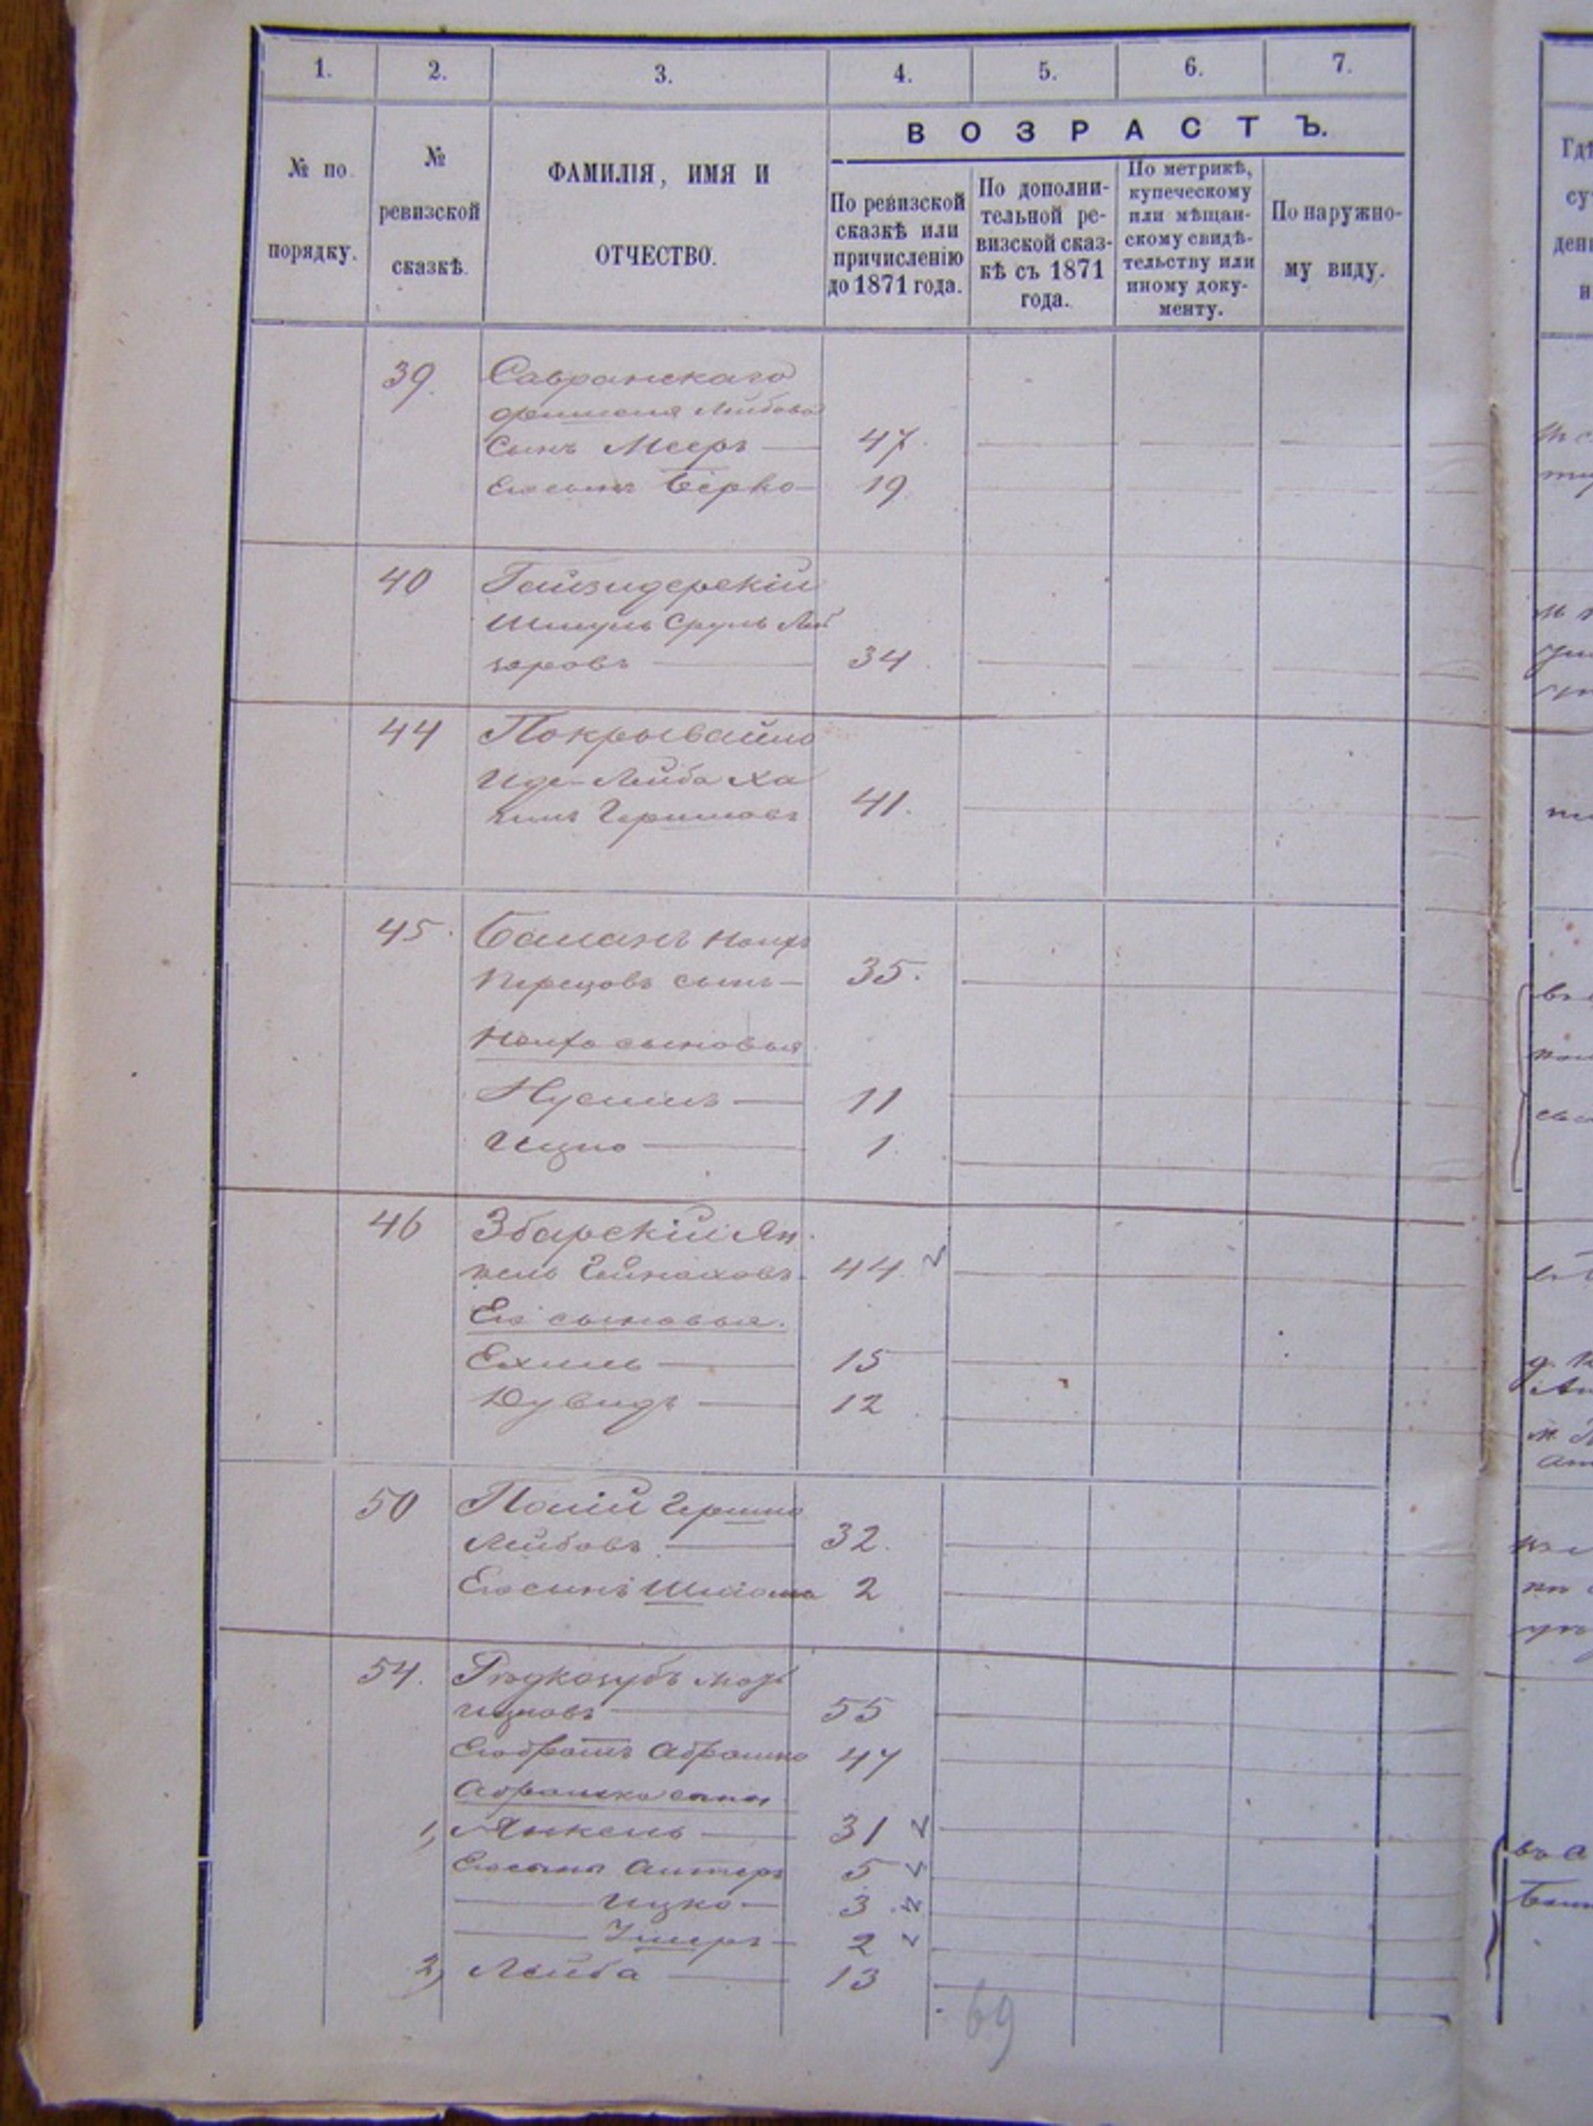 1. 2. 3. 4. 5. 6. 7.
№ по порядку.
№ ревизской сказкѣ.
ФАМИЛІЯ, ИМЯ И
ОТЧЕСТВО.
ВОЗРАСТЪ.
По ревизской
сказкѣ или
причисленію
до 1871 года.
По дополни-
тельной ре-
визской сказ-
кѣ съ 1871
года.
По метрикѣ,
купеческому
или мѣщан-
скому свидѣ-
тельству или
иному доку-
менту.
По наружно-
му виду.
39. Савранскаго
Лейбова
Сынъ Мееръ — 47.
Его сынъ Берко — 19.
40 Гайзидерскій
Шмуль Сруль Лей
зеровъ — 34.
44 Покрывайло
Иде-Лейба Ха
имъ Гершковъ 41.
45. Баланъ
Перецовъ сынъ — 35.
сыновья
Нусимъ — 11
Ицко — 1.
46 Збарскій Ян
кель Гейноховъ 44.
Его сыновья.
Ехиль — 15
Дувидъ — 12
50 Палій Гершко
Лейбовъ — 32.
Его сынъ Шлиома 2
54. Рѣдкозубъ
Ицковъ — 55
Его братъ Абрашко 47
Абрашка сыны
1, Янкель — 31
Его сыны Алтеръ 5
— Ицко — 3
— 2
2, Лейба — 13
69